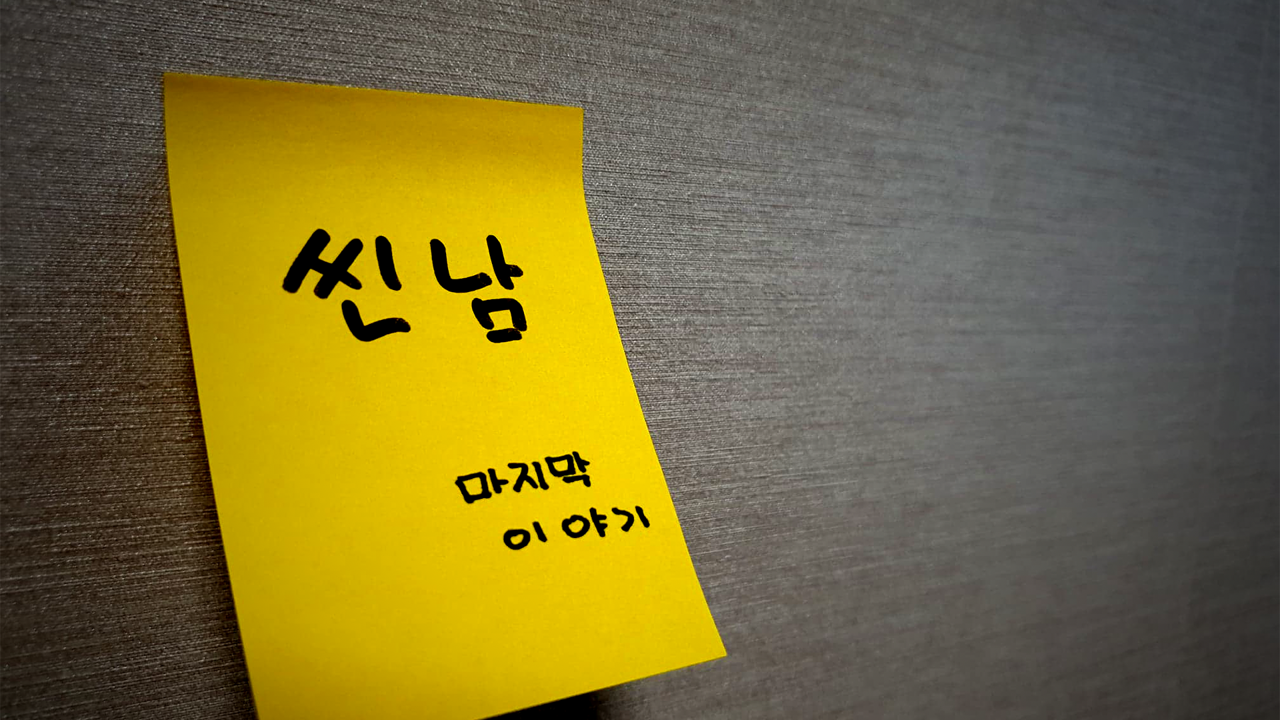 씬남
마지막
이야기